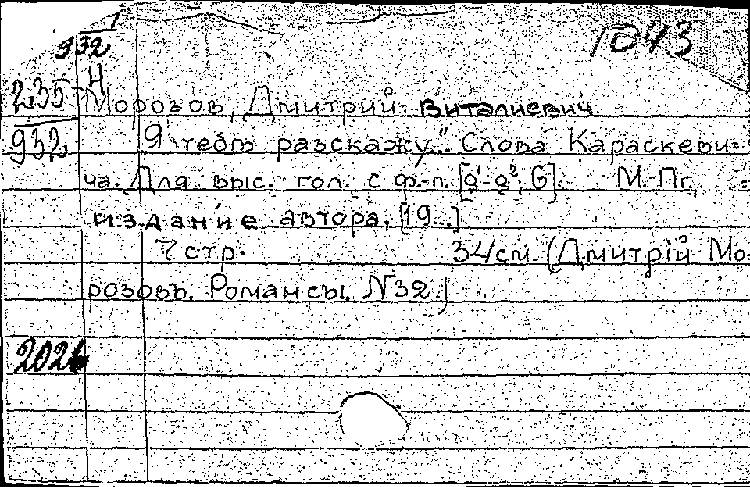 1
932
Н
1043
235
932
Морозов, Дмитрий Виталиевич
Я тебѣ разскажу. Слова Караскеви-
ча. Для выс. гол. с ф.-п. [g¹-g², G]. М.-Пг.,
издание автора, [19..]
7 стр. 34 см. (Дмитрій Мо-
розовъ. Романсы, N32)
2021